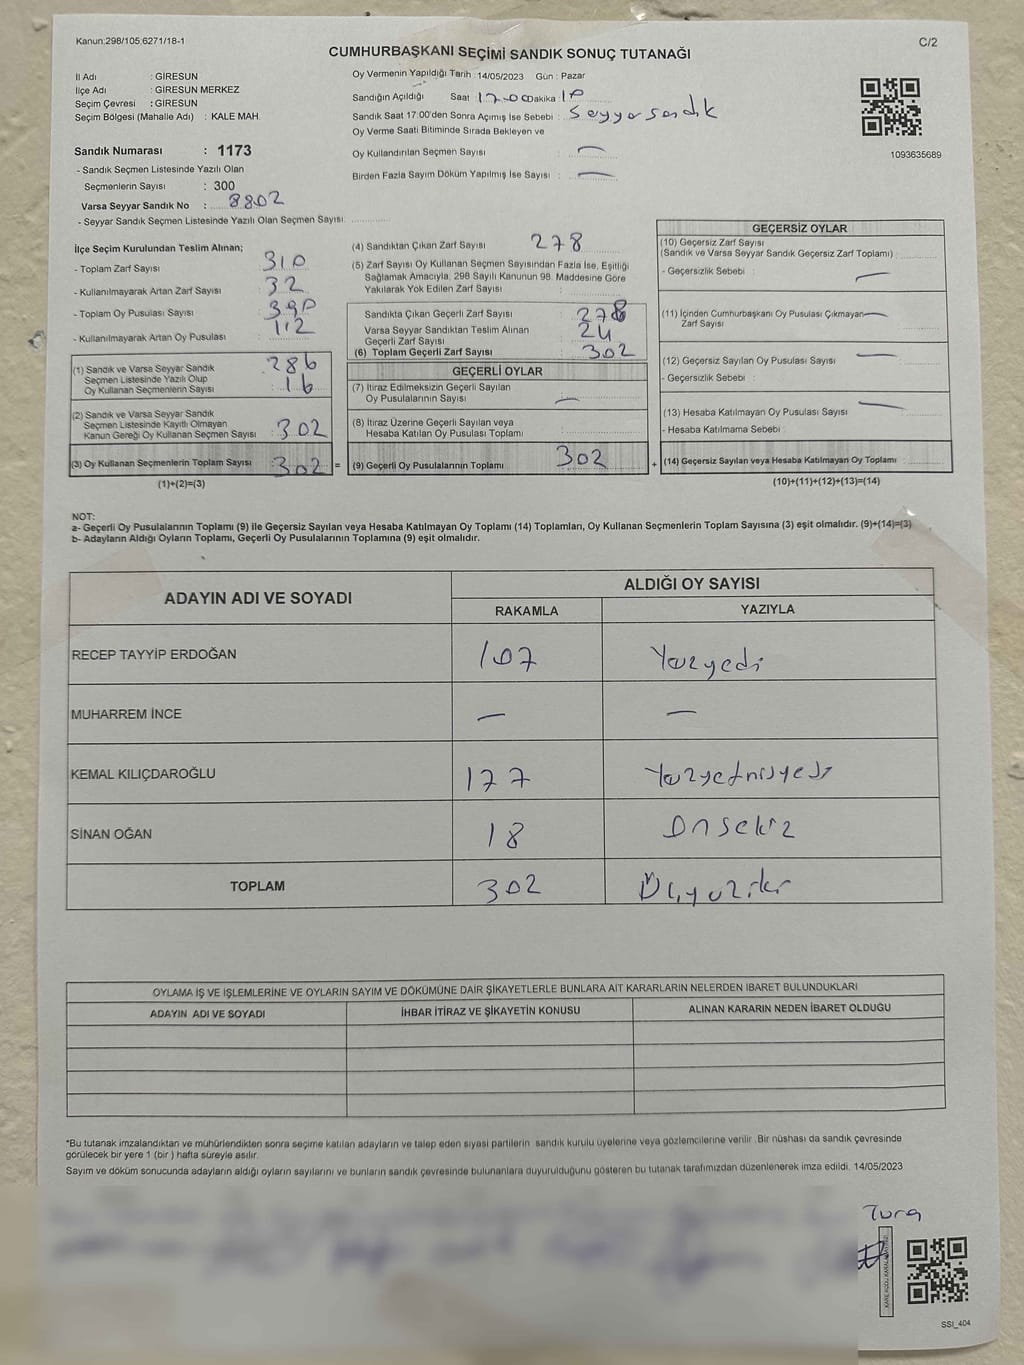 Kanun:298/105,6271/18-1
C/2
CUMHURBAŞKANI SEÇİMİ SANDIK SONUÇ TUTANAĞI
İl Adı : GİRESUN
İlçe Adı : GİRESUN MERKEZ
Seçim Çevresi : GİRESUN
Seçim Bölgesi (Mahalle Adı) : KALE MAH.
Oy Vermenin Yapıldığı Tarih : 14/05/2023 Gün : Pazar
Sandığın Açıldığı Saat 17.00 Dakika : 10
Sandık Saat 17:00'den Sonra Açımış İse Sebebi : Seyyar sandık
Oy Verme Saati Bitiminde Sırada Bekleyen ve
Oy Kullandırılan Seçmen Sayısı : —
Birden Fazla Sayım Döküm Yapılmış İse Sayısı : —
1093635689
Sandık Numarası : 1173
- Sandık Seçmen Listesinde Yazılı Olan
Seçmenlerin Sayısı : 300
Varsa Seyyar Sandık No : 8802
- Seyyar Sandık Seçmen Listesinde Yazılı Olan Seçmen Sayısı:
İlçe Seçim Kurulundan Teslim Alınan;
- Toplam Zarf Sayısı : 310
- Kullanılmayarak Artan Zarf Sayısı : 32
- Toplam Oy Pusulası Sayısı : 390
- Kullanılmayarak Artan Oy Pusulası : 112
(1) Sandık ve Varsa Seyyar Sandık
Seçmen Listesinde Yazılı Olup
Oy Kullanan Seçmenlerin Sayısı : 286
16
(2) Sandık ve Varsa Seyyar Sandık
Seçmen Listesinde Kayıtlı Olmayan
Kanun Gereği Oy Kullanan Seçmen Sayısı : 302
(3) Oy Kullanan Seçmenlerin Toplam Sayısı : 302 =
(1)+(2)=(3)
(4) Sandıktan Çıkan Zarf Sayısı : 278
(5) Zarf Sayısı Oy Kullanan Seçmen Sayısından Fazla İse, Eşitliği
Sağlamak Amacıyla, 298 Sayılı Kanunun 98. Maddesine Göre
Yakılarak Yok Edilen Zarf Sayısı :
Sandıkta Çıkan Geçerli Zarf Sayısı : 278
Varsa Seyyar Sandıktan Teslim Alınan
Geçerli Zarf Sayısı : 24
(6) Toplam Geçerli Zarf Sayısı : 302
GEÇERLİ OYLAR
(7) İtiraz Edilmeksizin Geçerli Sayılan
Oy Pusulalarının Sayısı : —
(8) İtiraz Üzerine Geçerli Sayılan veya
Hesaba Katılan Oy Pusulası Toplamı :
(9) Geçerli Oy Pusulalarının Toplamı : 302 +
GEÇERSİZ OYLAR
(10) Geçersiz Zarf Sayısı
(Sandık ve Varsa Seyyar Sandık Geçersiz Zarf Toplamı) :
- Geçersizlik Sebebi : —
(11) İçinden Cumhurbaşkanı Oy Pusulası Çıkmayan —
Zarf Sayısı :
(12) Geçersiz Sayılan Oy Pusulası Sayısı : —
- Geçersizlik Sebebi :
(13) Hesaba Katılmayan Oy Pusulası Sayısı : —
- Hesaba Katılmama Sebebi :
(14) Geçersiz Sayılan veya Hesaba Katılmayan Oy Toplamı :
(10)+(11)+(12)+(13)=(14)
NOT:
a- Geçerli Oy Pusulalarının Toplamı (9) ile Geçersiz Sayılan veya Hesaba Katılmayan Oy Toplamı (14) Toplamları, Oy Kullanan Seçmenlerin Toplam Sayısına (3) eşit olmalıdır. (9)+(14)=(3)
b- Adayların Aldığı Oyların Toplamı, Geçerli Oy Pusulalarının Toplamına (9) eşit olmalıdır.
ADAYIN ADI VE SOYADI
ALDIĞI OY SAYISI
RAKAMLA YAZIYLA
RECEP TAYYİP ERDOĞAN 107 Yüzyedi
MUHARREM İNCE — —
KEMAL KILIÇDAROĞLU 177 Yüzyetmişyedi
SİNAN OĞAN 18 Onsekiz
TOPLAM 302 Üçyüziki
OYLAMA İŞ VE İŞLEMLERİNE VE OYLARIN SAYIM VE DÖKÜMÜNE DAİR ŞİKAYETLERLE BUNLARA AİT KARARLARIN NELERDEN İBARET BULUNDUKLARI
ADAYIN ADI VE SOYADI İHBAR İTİRAZ VE ŞİKAYETİN KONUSU ALINAN KARARIN NEDEN İBARET OLDUĞU
*Bu tutanak imzalandıktan ve mühürlendikten sonra seçime katılan adayların ve talep eden siyasi partilerin sandık kurulu üyelerine veya gözlemcilerine verilir .Bir nüshası da sandık çevresinde
görülecek bir yere 1 (bir ) hafta süreyle asılır.
Sayım ve döküm sonucunda adayların aldığı oyların sayılarını ve bunların sandık çevresinde bulunanlara duyurulduğunu gösteren bu tutanak tarafımızdan düzenlenerek imza edildi. 14/05/2023
SSI_404